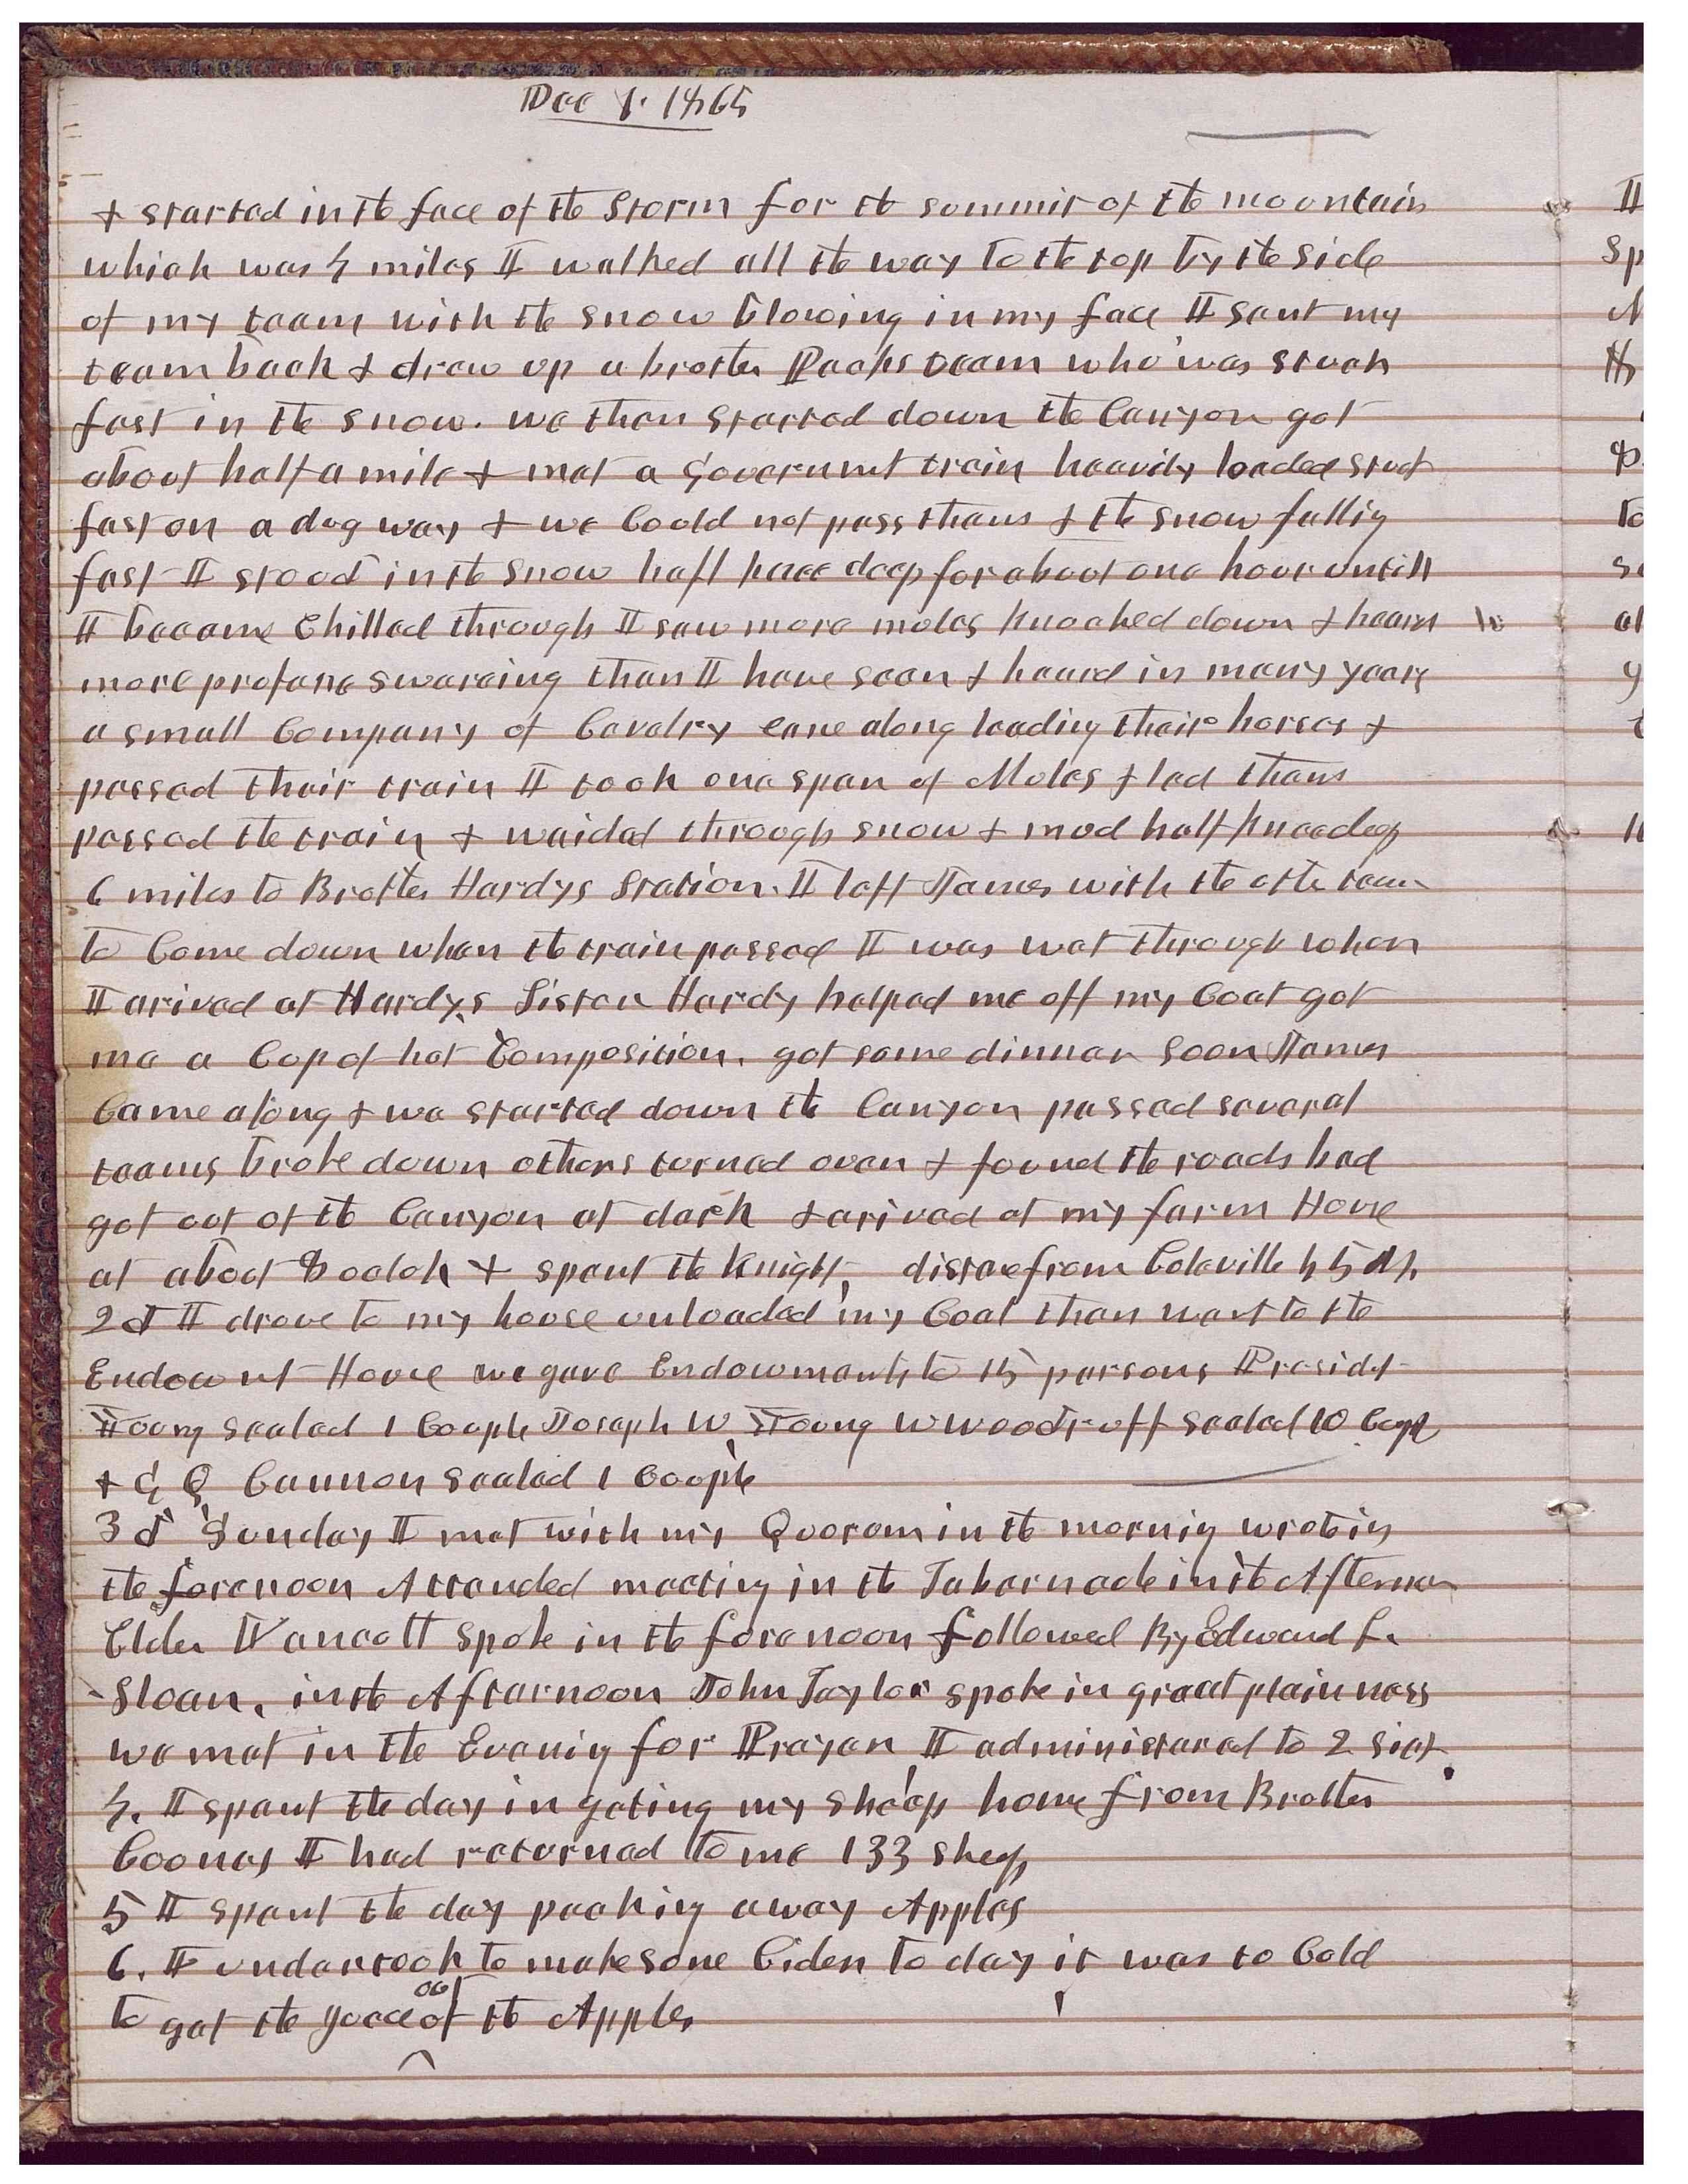 Dec 1. 1865
& started in the face of the Storm for the summit of the mountain
which was 4 miles I walked all the way to the top by the side
of my team with the snow blowing in my face I sent my
team back & drew up a brother Packs team who was stuck
fast in the snow. we then started down the Canyon got
about half a mile & met a Governmt train heavily loaded stuck
fast on a dug way & we Could not pass them & the snow falling
fast I stood in the snow half knee deep for about one hour untill
I became Chilled through I saw more mules knocked down & heard
more profane swareing than I have seen & heard in many years
a small Company of Cavalry came along leading their horses &
passed their train I took one span of Mules & led them
passed the train & waided through snow & mud half knee deep
6 miles to Brother Hardys Station. I left James with the other team
to Come down when the train passed I was wet through when
I arived at Hardys Sister Hardy helped me off my Coat got
me a Cup of hot Composition. got some dinner soon James
Came along & we started down the Canyon passed several
teams broke down others turned over & found the roads bad
got out of the Canyon at dark & arived at my farm House
at about 8 oclok & spent the knight, distance from Coleville 45 M.
2d I drove to my house unloaded my Coal then went to the
Endowmt House we gave Endowments to 15 persons Presidt
Young sealed 1 Couple Joseph W Young W Woodruff sealed 10 Coupl
& G Q Cannon sealed 1 Couple
3d Sunday I met with my Quorum in the morning wrote in
the forenoon Attended meeting in the Tabernacle in the Afternoon
Elder Vancott spoke in the forenoon followed By Edward L.
Sloan. in the Afternoon John Taylor spoke in great plainness
we met in the Evening for Prayer I administered to 2 sick
4. I spent the day in geting my sheep home from Brother
Coones I had returned to me 133 sheep
5 I spent the day packing away Apples
6. I undertook to make some Cider to day it was to Cold
out
to get the juice of the Apples